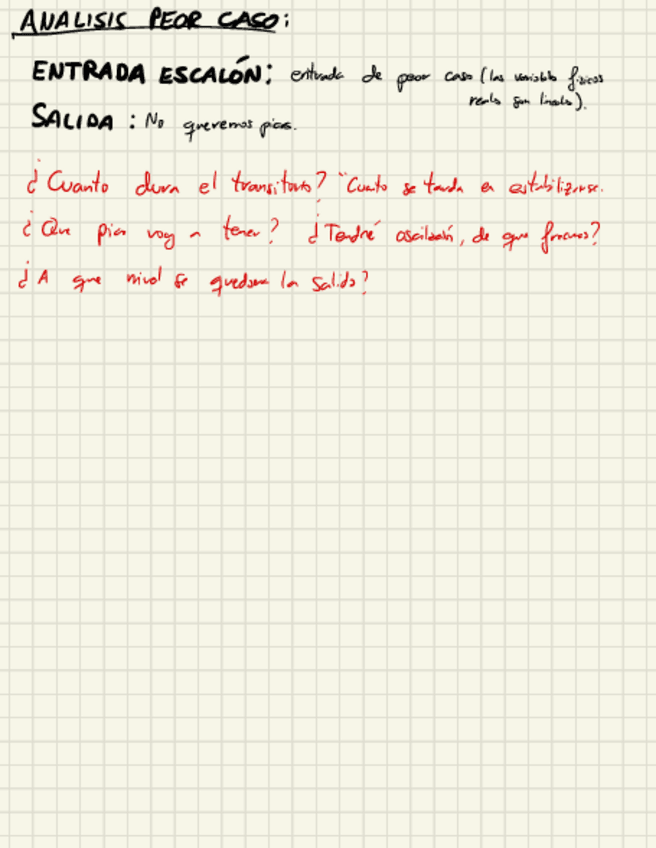 ANALISIS PEOR CASO:
ENTRADA ESCALÓN: entrada de peor caso (las variables físicas
reales son lineales).
SALIDA : No queremos picos.
¿Cuanto dura el transitorio? "Cuanto se tarda en estabilizarse.
¿Que pico voy a tener? ¿Tendré oscilación, de que frecuencia?
¿A que nivel se quedara la salida?